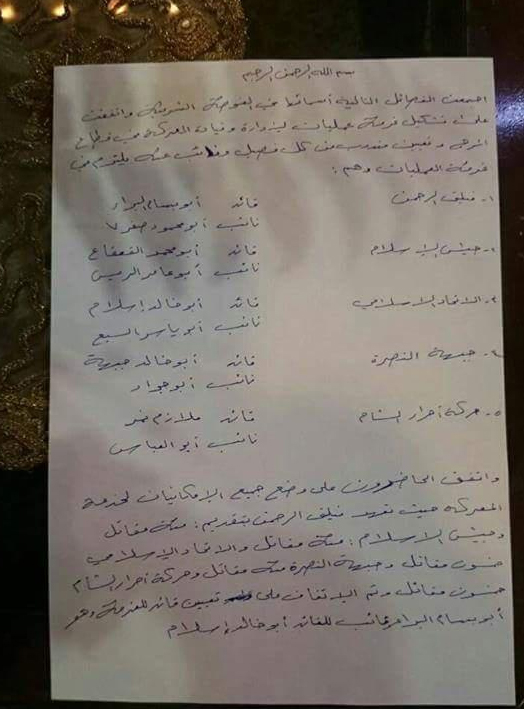 بسم الله الرحمن الرحيم
اجتمعت الفصائل التالية أسمائها في الغوطة الشرقية واتفقت
على تشكيل غرفة عمليات لإدارة وقيادة المعركة في قطاع
المرج وتعيين مندوب من كل فصيل ونائب عنه ملتزم في
غرفة العمليات وهم :
١- فيلق الرحمن قائد أبو بسام البراء
نائب أبو محمود صقر ٧
٢- جيش الإسلام قائد أبو محمد القعقاع
نائب أبو عامر الريس
٣- الاتحاد الاسلامي قائد أبو خالد إسلام
نائب أبو ياسر السبع
٤- جبهة النصرة قائد أبو خالد جبهة
نائب أبو جواد
٥- حركة أحرار الشام قائد ملازم
نائب أبو العباس
واتفق الحاضرون على وضع جميع الإمكانيات لخدمة
المعركة حيث تعهد فيلق الرحمن بتقديم : مئة مقاتل
وجيش الإسلام : مئة مقاتل والاتحاد الإسلامي
خمسون مقاتل وجبهة النصرة مئة مقاتل وحركة أحرار الشام
خمسون مقاتل وتم الاتفاق على تعيين قائد للغرفة وهو
أبو بسام البراء ونائب للقائد أبو خالد إسلام